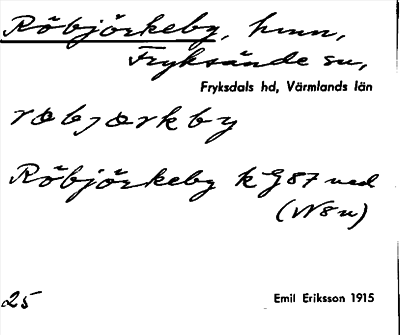 Röbjörkeby, hmn,
Fryksände sn,
Fryksdals hd, Värmlands län
rœbjœrkby
Röbjörkeby k G87 ned
(N8u)
25
Emil Eriksson 1915